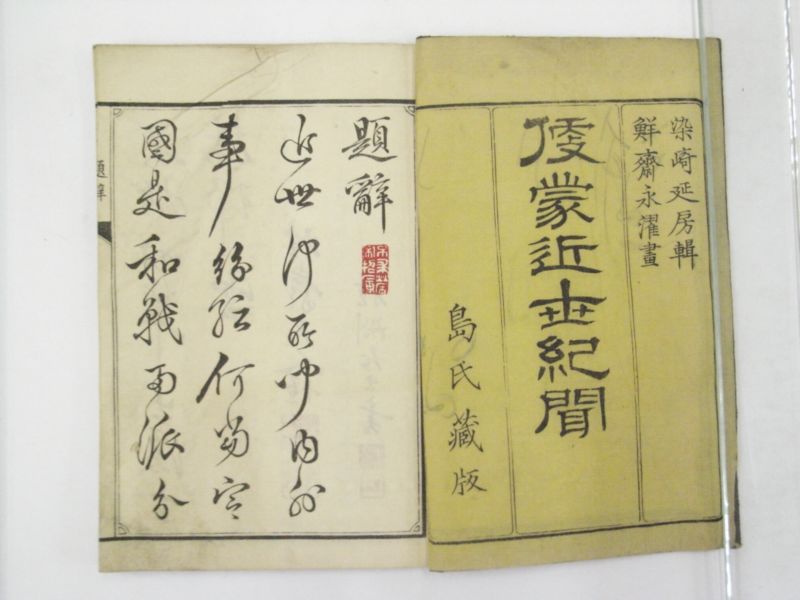 染崎延房輯
鮮齋永濯畫
蒙近世紀聞
島氏藏版
題辭
近世何所聞內外
事紛紜何當定
國是和戰兩派分
題辭